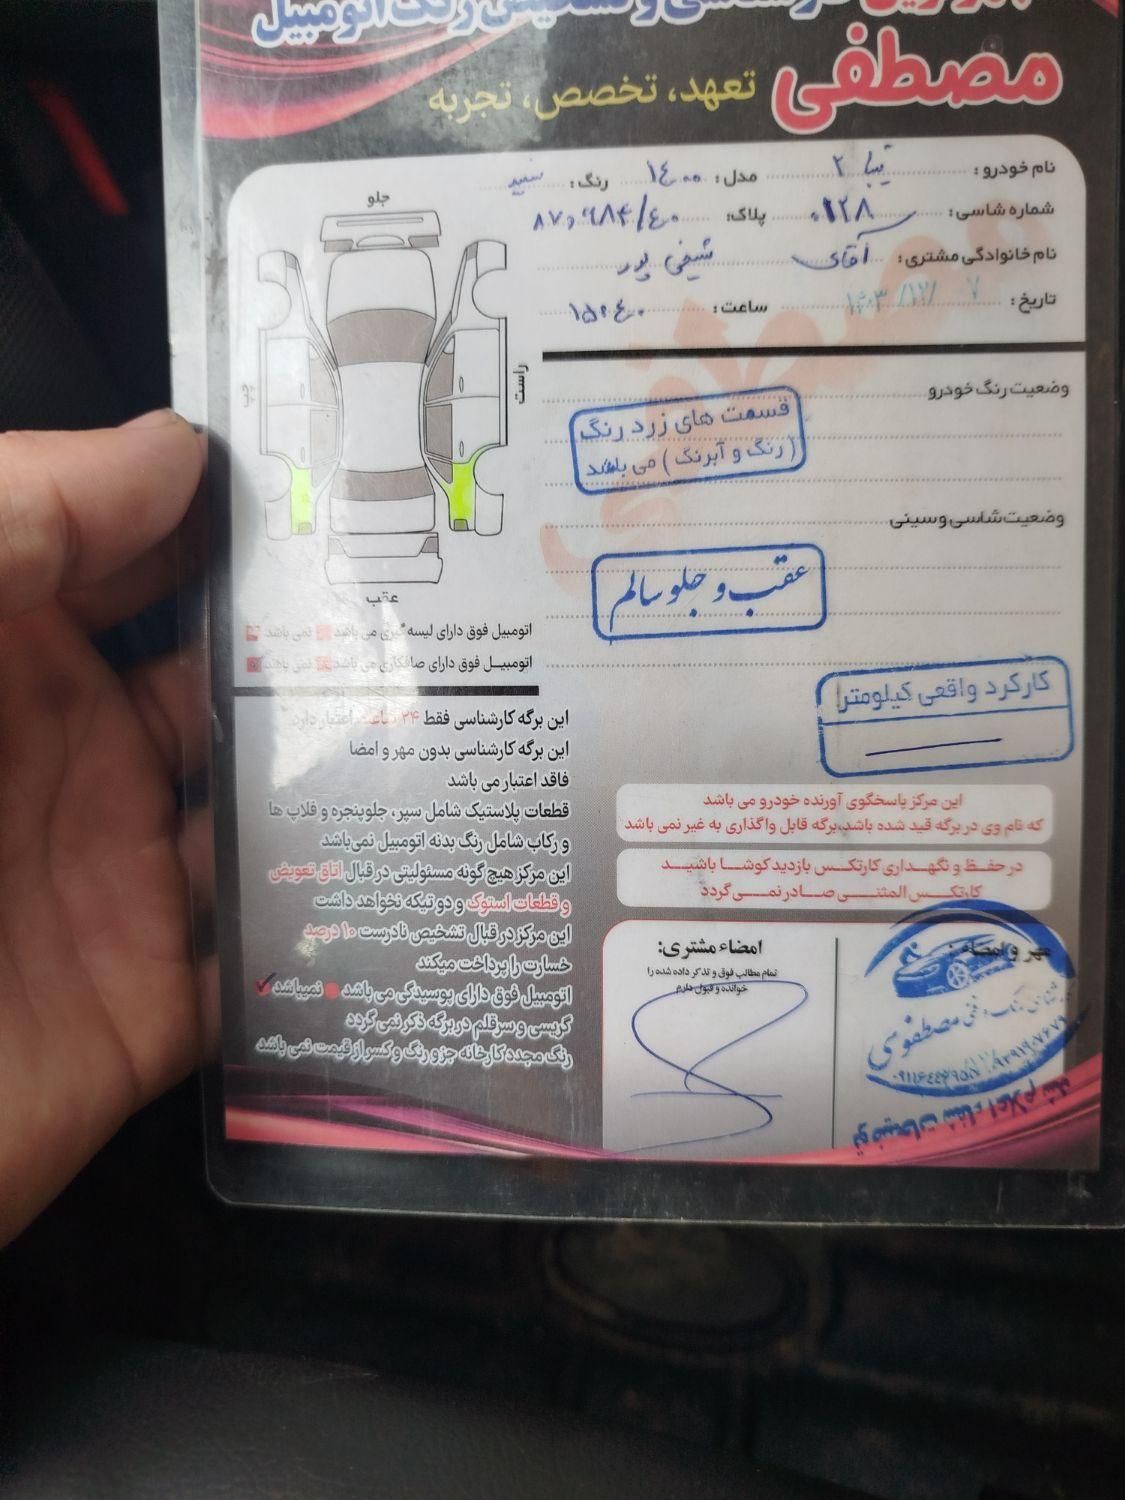 مصطفی
تعهد، تخصص، تجربه
نام خودرو: تیبا ۲ مدل: ۱۴۰۰ رنگ: سفید
شماره شاسی: پلاک:
نام خانوادگی مشتری: آقای شیخی پور
تاریخ: ۷ /۱۲/ ۱۴۰۳ ساعت: ۱۵:۴۰
جلو
راست
چپ
عقب
وضعیت رنگ خودرو
قسمت های زرد رنگ
(رنگ و آبرنگ) می باشد
وضعیت شاسی و سینی
عقب و جلو سالم
کارکرد واقعی کیلومتر
اتومبیل فوق دارای لیسه گیری می باشد نمی باشد
اتومبیل فوق دارای صافکاری می باشد نمی باشد
این برگه کارشناسی فقط ۲۴ ساعت اعتبار دارد
این برگه کارشناسی بدون مهر و امضا
فاقد اعتبار می باشد
قطعات پلاستیک شامل سپر، جلوپنجره و فلاپ ها
و رکاب شامل رنگ بدنه اتومبیل نمی‌باشد
این مرکز هیچ گونه مسئولیتی در قبال اتاق تعویض
و قطعات استوک و دو تیکه نخواهد داشت
این مرکز در قبال تشخیص نادرست ۱۰ درصد
خسارت را پرداخت میکند
اتومبیل فوق دارای پوسیدگی می باشد نمیباشد
گریسی و سرقلم در برگه ذکر نمی گردد
رنگ مجدد کارخانه جزو رنگ و کسر از قیمت نمی باشد
این مرکز پاسخگوی آورنده خودرو می باشد
که نام وی در برگه قید شده باشد،برگه قابل واگذاری به غیر نمی باشد
در حفظ و نگهداری کارتکس بازدید کوشا باشید
کارتکس المثنی صادر نمی گردد
امضاء مشتری:
تمام مطالب فوق و تذکر داده شده را
خوانده و قبول دارم
مهر و امضاء:
توضیحات شفاء اعلام شد